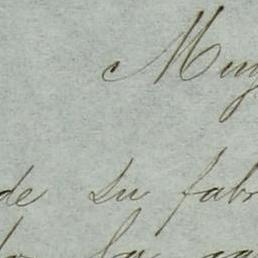 Muy
de su fabr